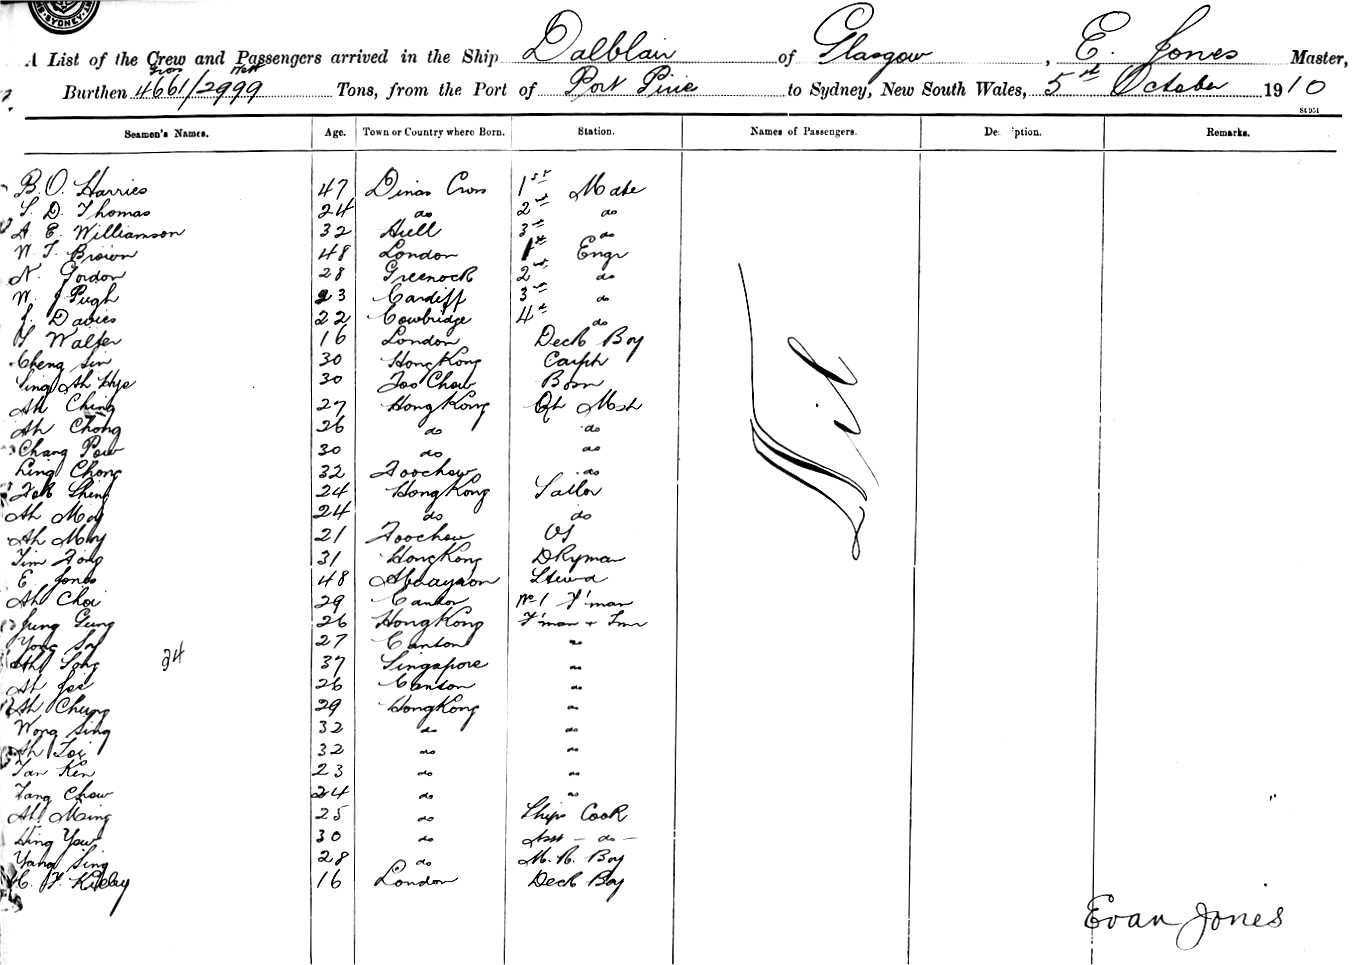 SYDNEY
A List of the Crew and Passengers arrived in the Ship Dalblair of Glasgow, E. Jones Master,
Gross Nett
Burthen 4661/2999 Tons, from the Port of Port Pirie to Sydney, New South Wales, 5th October 1910
St 951
Seamen's Names. Age. Town or Country where Born. Station. Names of Passengers. De ption. Remarks.
B. O. Harries 47 Dinas Cross 1st Mate
S. D. Thomas 24 do 2nd do
A. E. Williamson 32 Hull 3rd do
W T. Brown 48 London 1st Engr
N. Gordon 28 Greenock 2nd do
W. J Pugh 23 Cardiff 3rd do
J. Davies 22 Cowbridge 4th do
S Walter 16 London Deck Boy
Cheng Sin 30 HongKong Carph
Ling Ah Hye 30 Foo Chow Bosn
Ah Ching 27 HongKong Qh Msh
Ah Chong 26 do do
Chang Pow 30 do do
Ling Chong 32 Foochow do
Fok Shing 24 HongKong Sailor
Ah Moy 24 do do
Ah Moy 21 Foochow OS
Tim Fong 31 HongKong DKyman
E Jones 48 Aberayron Steward
Ah Choi 29 Canton No 1 F'man
Jung Gung 26 HongKong F'man + Tmr
Yong So 27 Canton "
Ah Song 37 Singapore "
24
Ah Jee 26 Canton "
Ah Chung 29 HongKong "
Wong Sing 32 do "
Ah Loi 32 do "
Tan Ken 23 do "
Tang Chow 24 do "
Ah Ming 25 do Ships Cook
Hing Yow 30 do Asst - do -
Yang Sing 28 do M. R. Boy
H. F. Kilby 16 London Deck Boy
Nil
Evan Jones